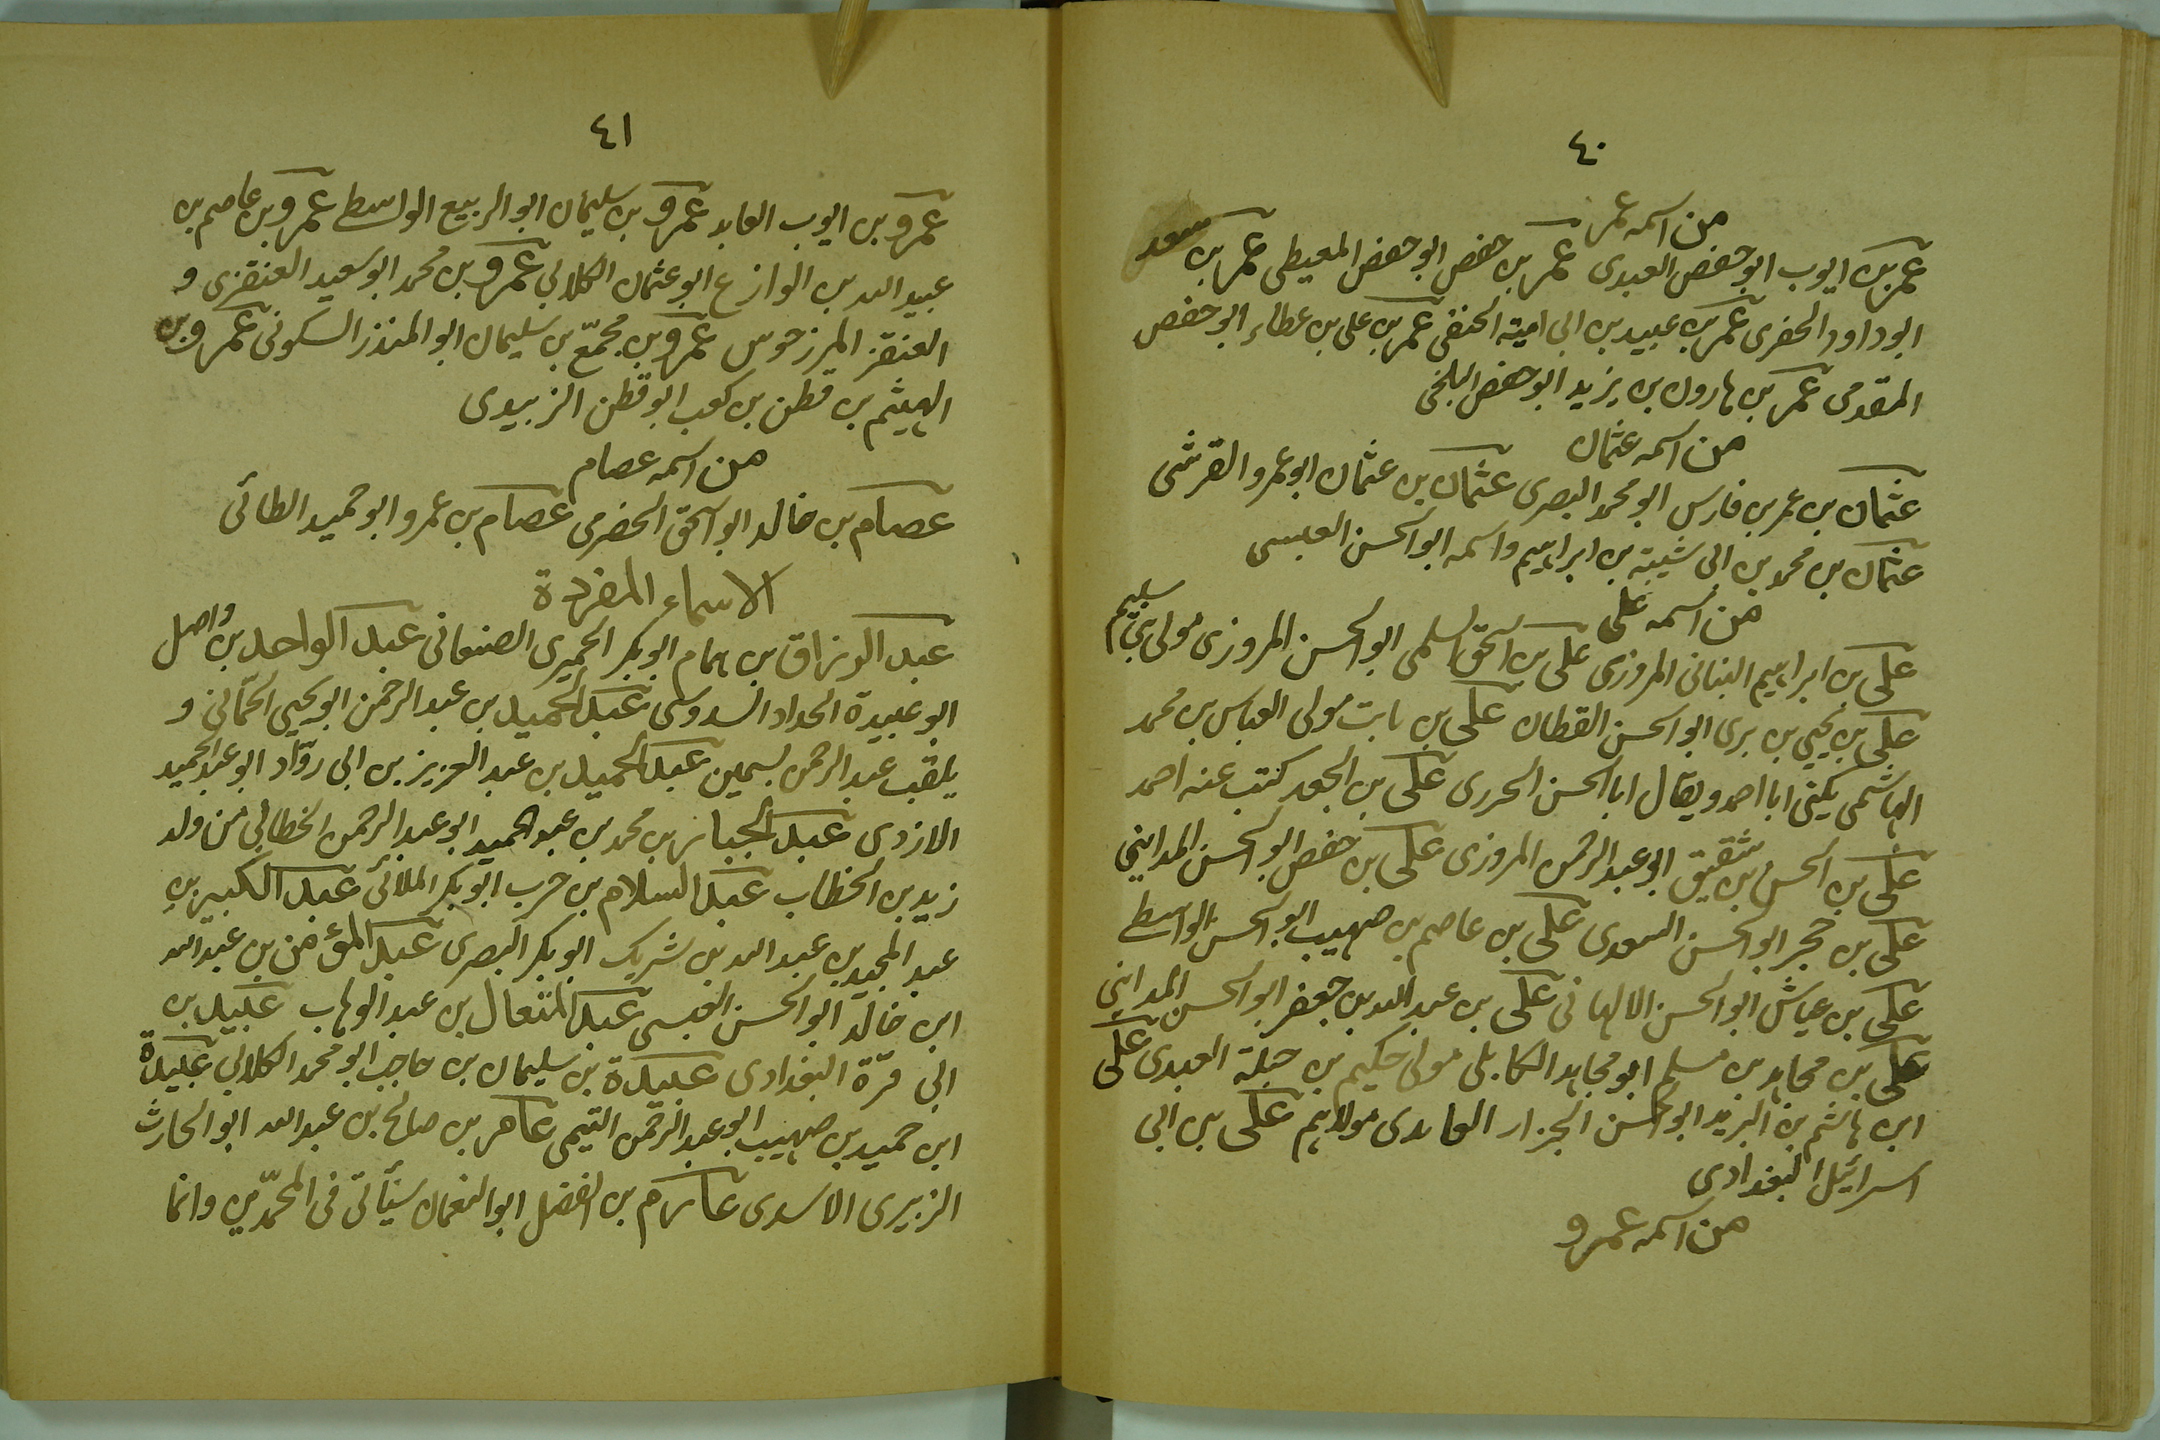 ٤٠
من اسمه عمر
عمر بن ايوب ابو حفص العبدى عمر بن حفص ابو حفص المعيطى عمر بن سعد
ابو داود الحفرى عمر بن عبيد بن ابى امية الحنفى عمر بن على بن عطاء ابو حفص
المقدمى عمر بن هارون بن يزيد ابو حفص البلخى
من اسمه عثمان
عثمان بن عمر بن فارس ابو محمد البصرى عثمان بن عثمان ابو عمرو القرشى
عثمان بن محمد بن ابى شيبة بن ابراهيم واسمه ابو الحسن العبسى
من اسمه على
على بن ابراهيم البنانى المروزى على بن اسحق السلمى ابو الحسن المروزى مولى بنى سليم
على بن يحيى بن برى ابو الحسن القطان على بن ثابت مولى العباس بن محمد
الهاشمى يكنى ابا احمد ويقال ابا الحسن الجزرى على بن الجعد كتب عنه احمد
على بن الحسن بن شقيق ابو عبد الرحمن المروزى على بن حفص ابو الحسن المداينى
على بن حجر ابو الحسن السعدى على بن عاصم بن صهيب ابو الحسن الواسطى
على بن عياش ابو الحسن الالهانى على بن عبد الله بن جعفر ابو الحسن المداينى
على بن مجاهد بن مسلم ابو مجاهد الكابلى مولى حكيم بن جبلة العبدى على
ابن هاشم بن البريد ابو الحسن الجزار العابدى مولاهم على بن ابى
اسرائيل البغدادى
من اسمه عمرو
٤١
عمرو بن ايوب العابد عمرو بن سليمان ابو الربيع الواسطى عمرو بن عاصم بن
عبيد الله بن الوازع ابو عثمان الكلابى عمرو بن محمد ابو سعيد العنقزى و
العنقز المرزجوس عمرو بن مجمّع بن سليمان ابو المنذر السكونى عمرو بن
الهيثم بن قطن بن كعب ابو قطن الزبيدى
من اسمه عصام
عصام بن خالد ابو اسحق الحضرمى عصام بن عمرو ابو حميد الطائى
الاسماء المفردة
عبد الرزاق بن همام ابو بكر الحميرى الصنعانى عبد الواحد بن واصل
ابو عبيدة الحداد السدوسى عبد الحميد بن عبد الرحمن ابو يحيى الحمّانى و
يلقب عبد الرحمن بسمين عبد المجيد بن عبد العزيز بن ابى روّاد ابو عبد الحميد
الازدى عبد الجبار بن محمد بن عبد الحميد ابو عبد الرحمن الخطابى من ولد
زيد بن الخطاب عبد السلام بن حرب ابو بكر الملائى عبد الكبير بن
عبد المجيد بن عبد الله بن شريك ابو بكر البصرى عبد المؤمن بن عبد الله
ابن خالد ابو الحسن العبسى عبد المتعال بن عبد الوهاب عبيد بن
ابى قرّة البغدادى عبيدة بن سليمان بن حاجب ابو محمد الكلابى عبيدة
ابن حميد بن صهيب ابو عبد الرحمن التيمى عامر بن صالح بن عبد الله ابو الحارث
الزبيرى الاسدى عارم بن الفضل ابو النعمان سيأتى فى المحمّدين وانما